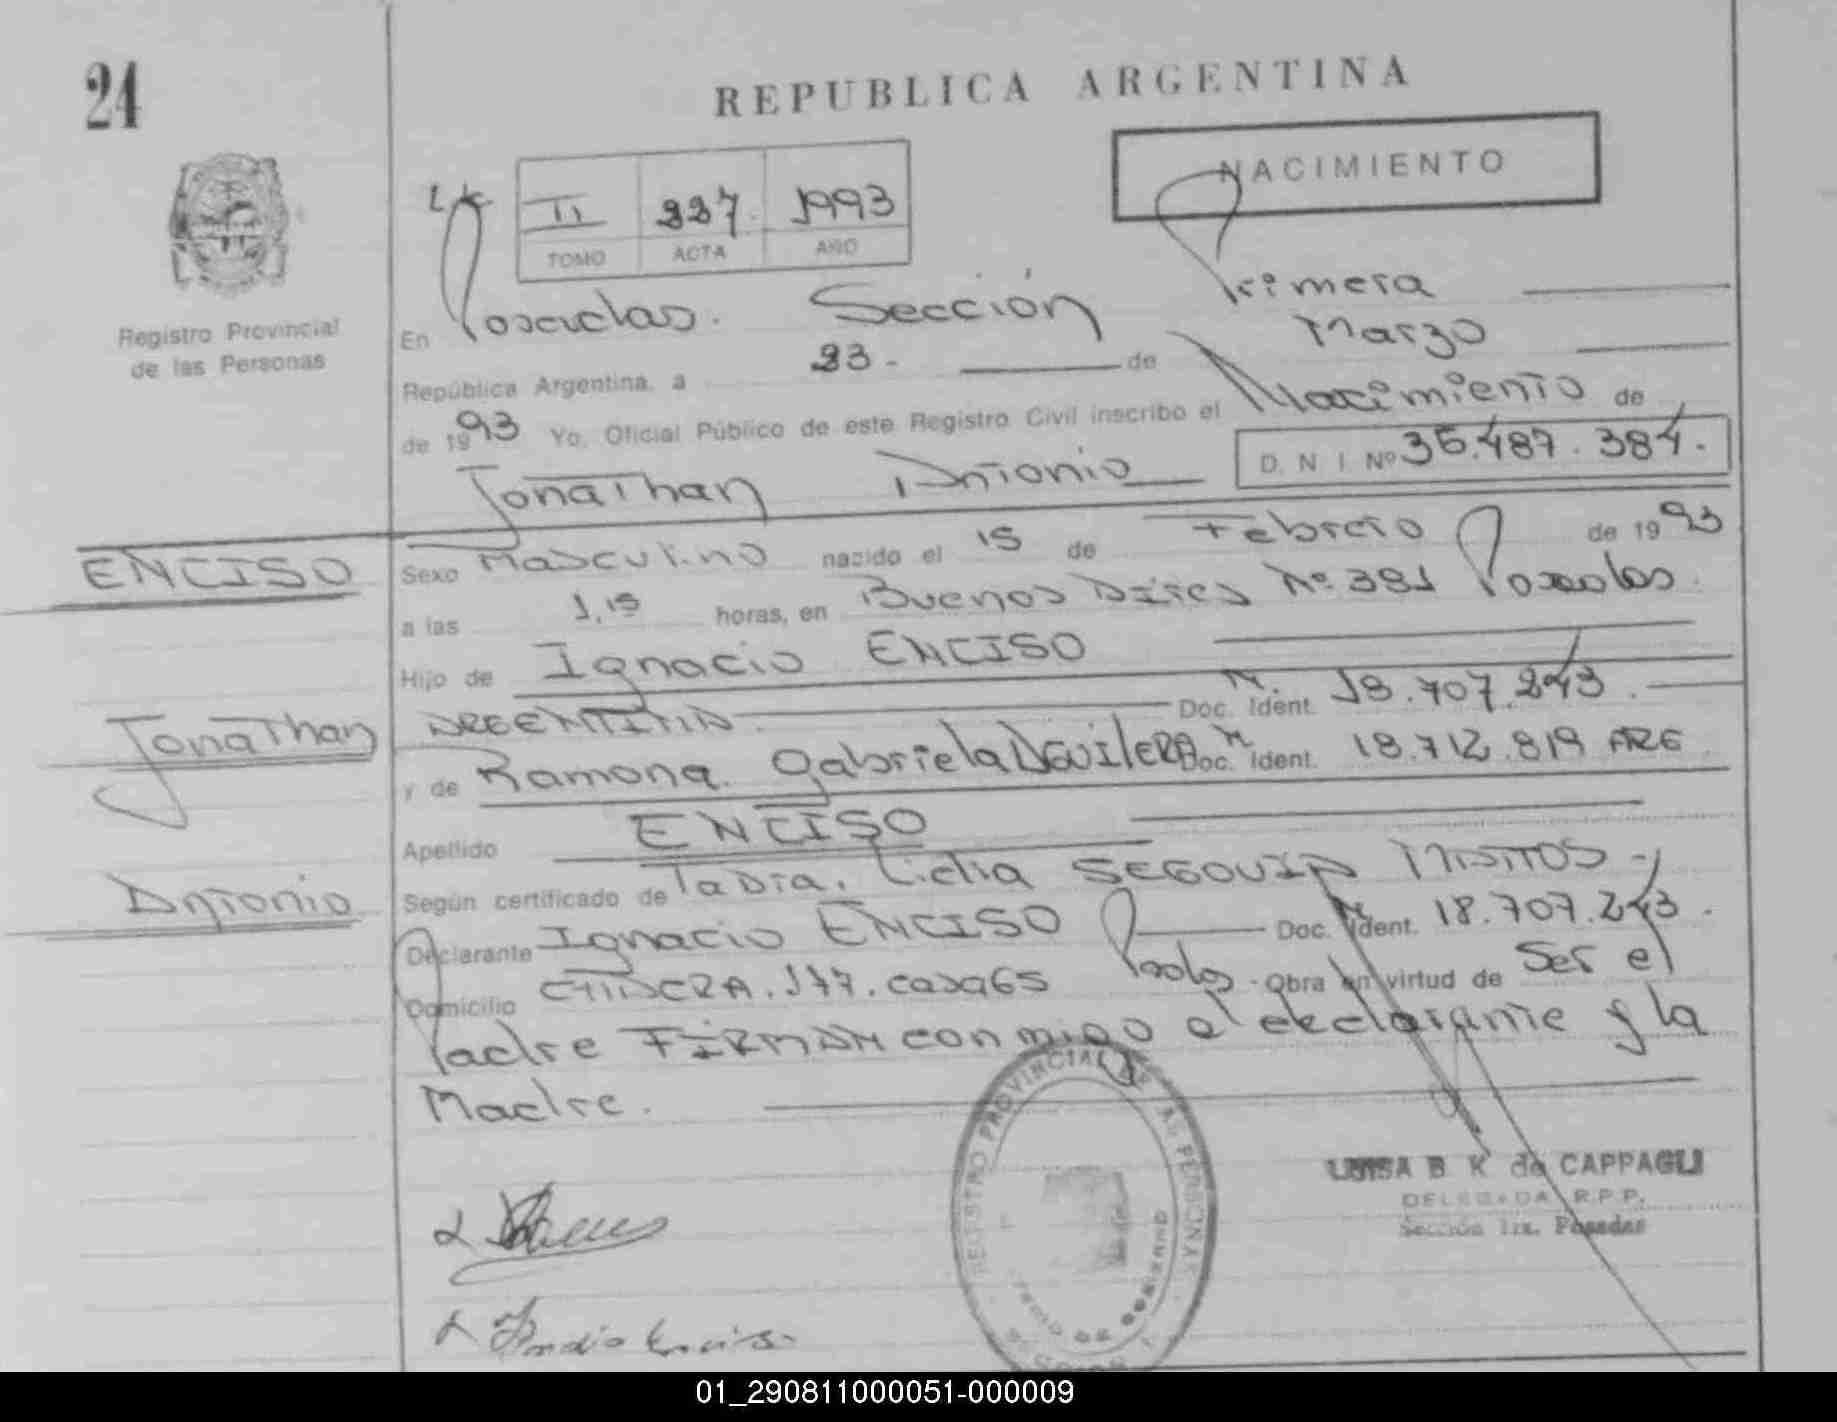 24
REPUBLICA ARGENTINA
NACIMIENTO
II 227 1993
TOMO ACTA AÑO
Registro Provincial
de las Personas
En Posadas. Sección Primera
República Argentina, a 23. de Marzo
de 1993 Yo, Oficial Público de este Registro Civil inscribo el Nacimiento de
Jonathan Antonio D. N. I. Nº 36.487.384.
ENCISO
Sexo Masculino nacido el 15 de Febrero de 1993
a las 1,15 horas, en Buenos Aires Nº 381 Posadas.
Hijo de Ignacio ENCISO
Jonathan
ARGENTINA. Doc. Ident. 18.707.243.
y de Ramona. Gabriela AGUILERA Doc. Ident. 18.712.819 ARG
Apellido ENCISO
Antonio
Según certificado de Lidia SEGOVIA
Declarante Ignacio ENCISO Doc. Ident. 18.707.243.
Domicilio 177. casa 65 Posadas. Obra en virtud de Ser el
Padre FIRMAN conmigo el declarante y la
Madre.
REGISTRO PROVINCIAL DE LAS PERSONAS
LUISA B K de CAPPAGLI
DELEGADA R.P.P.
Sección 1ra. Posadas
01_290811000051-000009